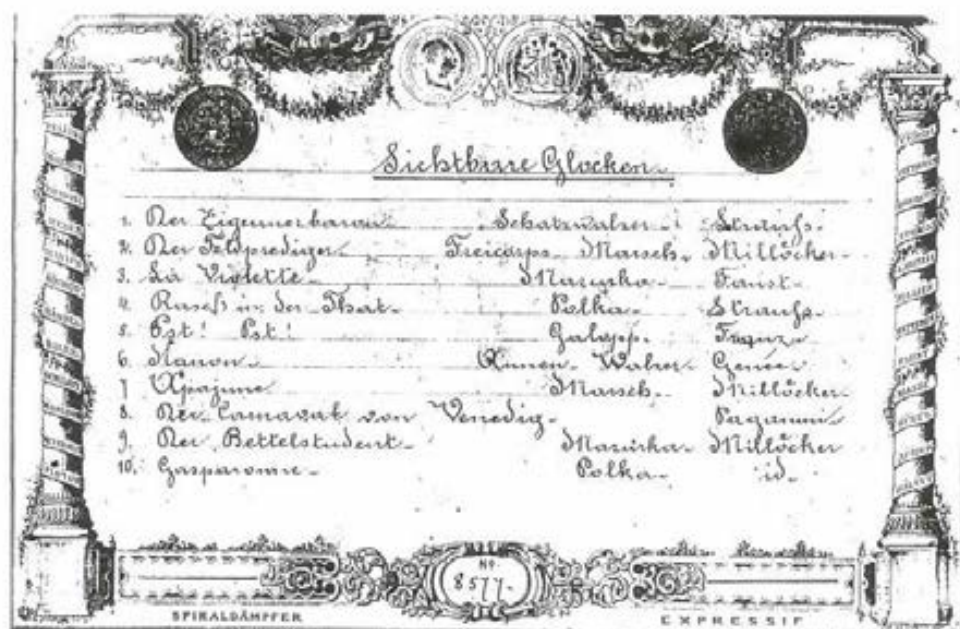 Sichtbare Glocken.
1. Der Zigeunerbaron Schatzwalzer Strauss.
2. Der Feldprediger Freicorps Marsch. Millöcker
3. La Violette Mazurka Faust
4. Rasch in der That Polka Strauss.
5. Pst! Pst! Galopp.
6. Nanon Walzer Genée
7 Apajune Marsch. Millöcker
8. Der Carnaval von Venedig Paganini
9. Der Bettelstudent Mazurka Millöcker
10. Gasparone Polka id.
No. 8577.
SPIRALDÄMPFER EXPRESSIF